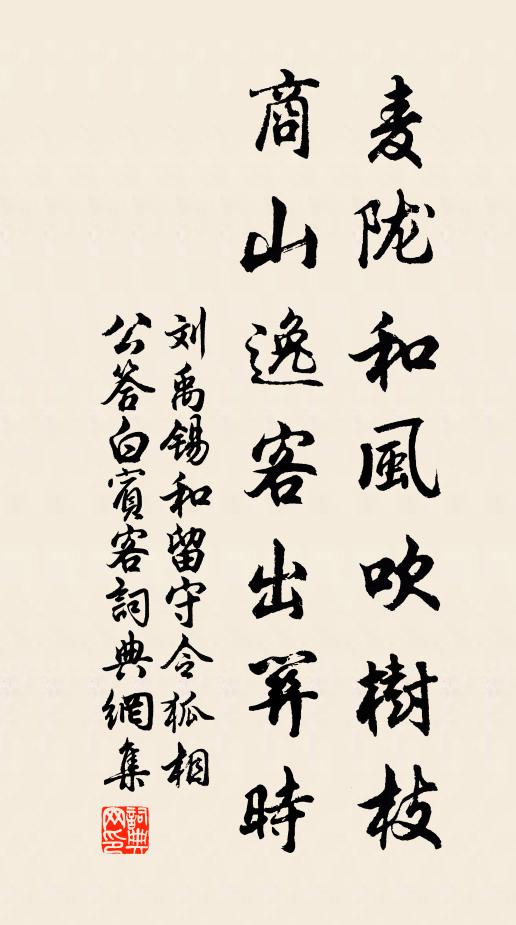 麦陇和風吹樹枝
商山逸客出關時
刘禹錫和留守令狐相
公答白賓客詞典網集
詞典
网印